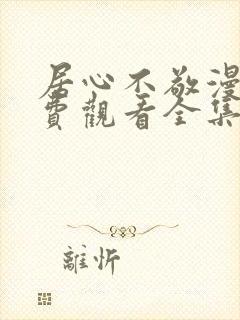 居心不敬漫
費觀看全集
離忻